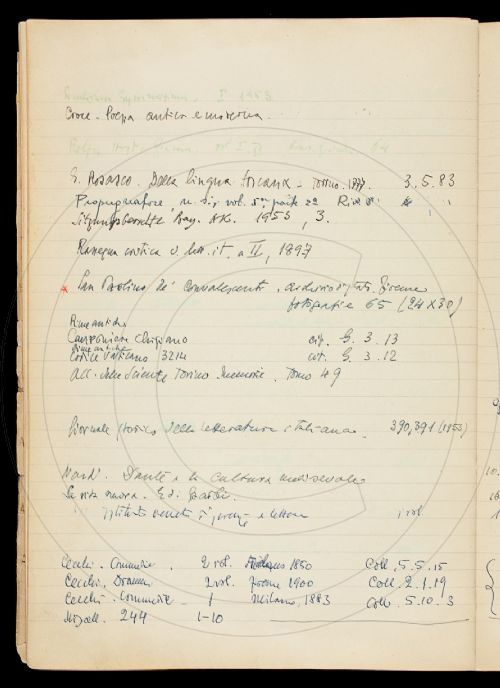 I 1953
Croce. Poesia antica e moderna.
G. Rosasco. Della lingua toscana - Torino. 3.5.83
Propugnatore, n. s. vol. parte 2a
Sitzungsberichte Bay. AK. 1953, 3.
Rassegna critica d. lett. it. a II, 1897
San Paolino de' Convalescenti. archivio di stato, firenze
fotografie 65 (24x30)
Rime antiche
Canzoniere Chigiano cit. G. 3. 13
rime antiche
Codice Vaticano 3214 cit. G. 3. 12
Acc. delle Scienze Torino. Memorie. Tomo 49
Giornale storico della letteratura italiana. 390, 391 (1953)
Nardi. Dante e la cultura medievale
La vita nuova. Ed. Barbi.
Istituto veneto di scienze e lettere 1 vol.
Cecchi. Commedie. 2 vol. Milano 1850 Coll. 5.5.15
Cecchi. Drammi 2 vol. firenze 1900 Coll. 2.1.19
Cecchi. Commedie - 1 Milano, 1883 Coll. 5.10.3
244 1-10